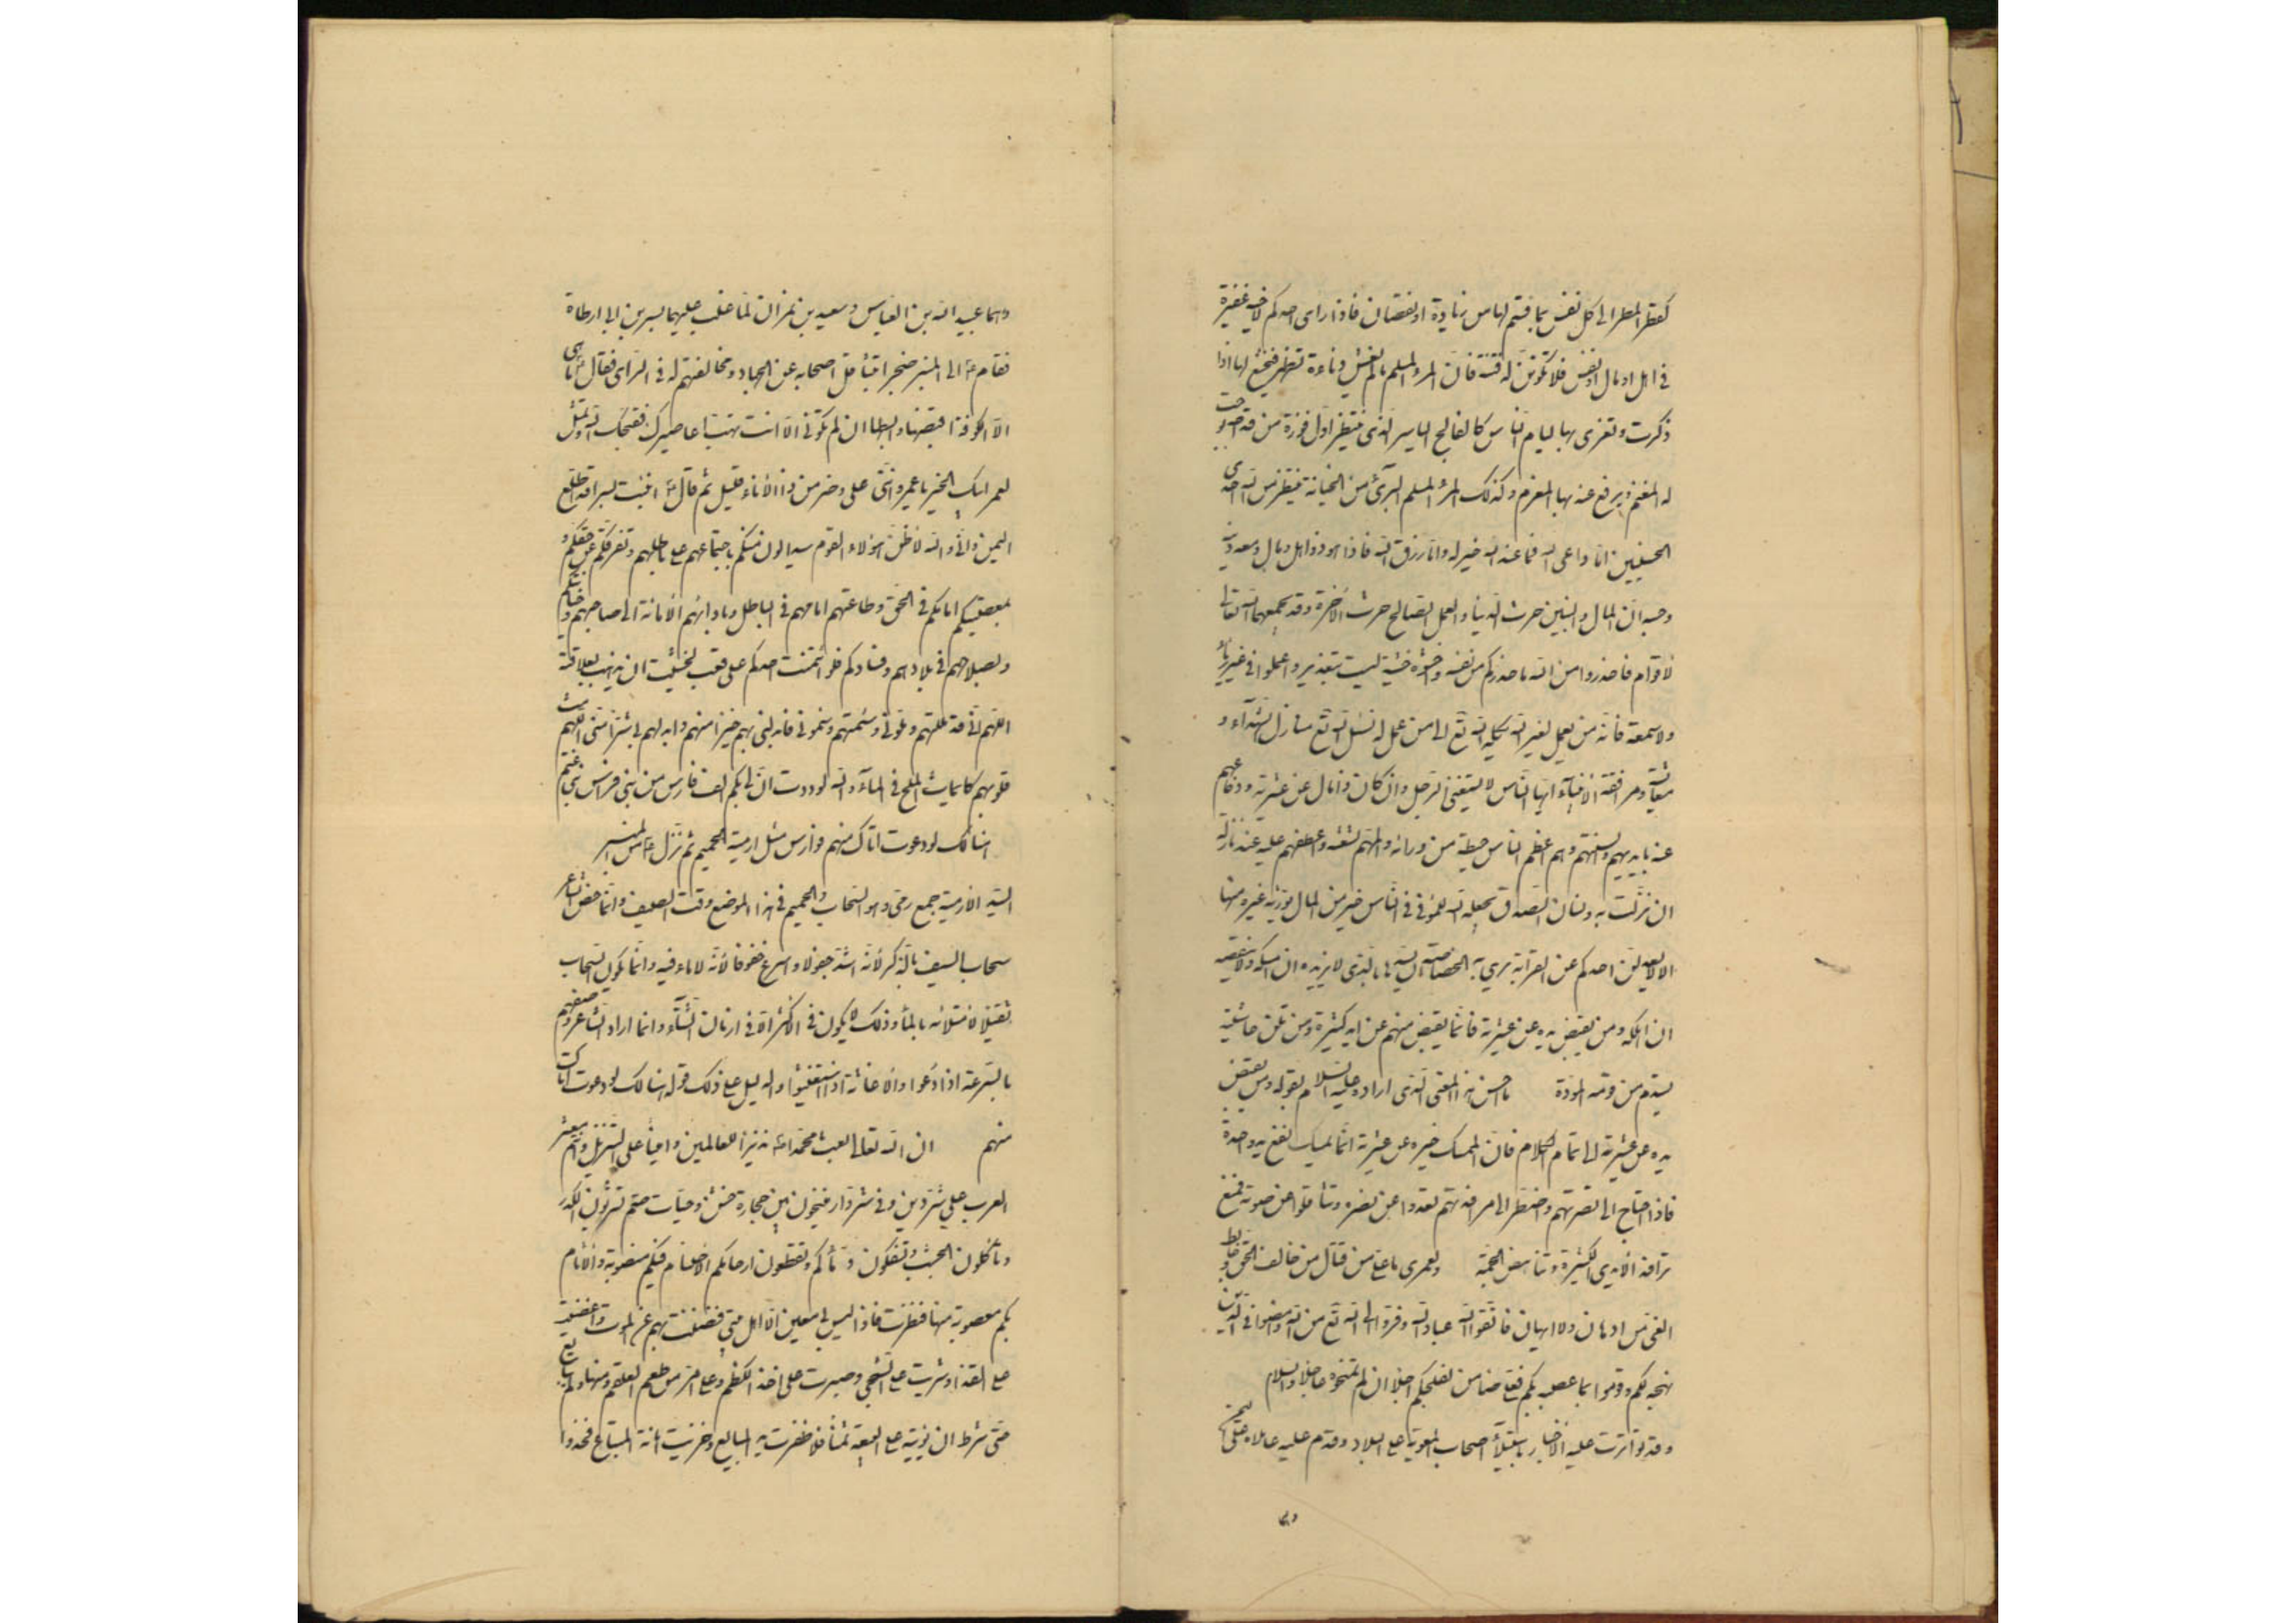 كقطر المطر الى كل نفس بما قسم لها من زيادة او نقصان فاذا راى احدكم لاخيه غفيرة
فى اهل او مال او نفس فلا تكونن له فتنة فان المرء المسلم ما لم يغش دناءة تظهر فيخشع لها اذا
ذكرت وتغرى بها ليام الناس كالفالج الياسر الذى ينتظر اول فوزة من قداحه توجب
له المغنم ويرفع عنه بها المغرم وكذلك المرء المسلم البرئ من الخيانة ينتظر من الله احدى
الحسنيين اما داعى الله فما عند الله خير له واما رزق الله فاذا هو ذو اهل ومال ومعه دينه
وحسبه ان المال والبنين حرث الدنيا والعمل الصالح حرث الآخرة وقد يجمعهما الله تعالى
لاقوام فاحذروا من الله ما حذركم من نفسه واخشوه خشية ليست بتعذير واعملوا فى غير رياء
ولا سمعة فانه من يعمل لغير الله يكله الله تع الى من عمل له نسئل الله تع منازل الشهداء و
معايشة السعداء ومرافقة الانبياء ايها الناس لا يستغنى الرجل وان كان ذا مال عن عشيرته ودفاعهم
عنه بايديهم والسنتهم وهم اعظم الناس حيطة من ورائه والمهم لشعثه واعطفهم عليه عند نازلة
ان نزلت به ولسان الصدق يجعله الله للمرء فى الناس خير من المال يورثه غيره منها
الا لا يعدلن احدكم عن القرابة يرى بها الخصاصة ان يسدها بالذى لا يزيده ان امسكه ولا ينقصه
ان اهلكه ومن يقبض يده عن عشيرته فانما يقبض منهم عن ايد كثيرة ومن تلن حاشيته
يستدم من قومه المودة ما احسن هذا المعنى الذى اراده عليه السلام بقوله ومن يقبض
يده عن عشيرته الى تمام الكلام فان الممسك خيره عن عشيرته انما يمسك نفع يد واحدة
فاذا احتاج الى نصرتهم واضطر الى مرافدتهم قعدوا عن نصره وتثاقلوا عن صوته فمنع
ترافد الايدى الكثيرة وتناهض الجمة ولعمرى ما على من قتال من خالف الحق وخابط
الغى من ادهان ولا ايهان فاتقوا الله عباد الله وفروا الى الله تع من الله وامضوا فى الذى
نهجه لكم وقوموا بما عصبه بكم فعلى ضامن لفلجكم آجلا ان لم تمنحوه عاجلا والسلام
وقد تواترت عليه الاخبار باستيلاء اصحاب المعوية على البلاد وقدم عليه عاملاه على اليمن
وهما
وهما عبيد الله بن العباس وسعيد بن نمران لما غلب عليهما بسر بن ابى ارطاة
فقام ع الى المنبر ضجرا بتثاقل اصحابه عن الجهاد ومخالفتهم له فى الراى فقال ع ما هى
الا الكوفة اقبضها وابسطها ان لم تكونى الا انت تهب اعاصيرك فقبحك الله وتمثل
لعمر ابيك الخير يا عمرو اننى على وضر من ذا الاناء قليل ثم قال ع انبئت بسرا قد اطلع
اليمن وانى والله لاظن هؤلاء القوم سيدالون منكم باجتماعهم على باطلهم وتفرقكم عن حقكم و
بمعصيتكم امامكم فى الحق وطاعتهم امامهم فى الباطل وبادائهم الامانة الى صاحبهم وخيانتكم
وبصلاحهم فى بلادهم وفسادكم فلو ائتمنت احدكم على قعب لخشيت ان يذهب بعلاقته
اللهم انى قد مللتهم وملونى وسئمتهم وسئمونى فابدلنى بهم خيرا منهم وابدلهم بى شرا منى اللهم مث
قلوبهم كما يماث الملح فى الماء والله لوددت ان لى بكم الف فارس من بنى فراس بن غنم
هنالك لو دعوت اتاك منهم فوارس مثل ارمية الحميم ثم نزل ع من المنبر
السيد الارمية جمع رمى وهو السحاب والحميم فى هذا الموضع وقت الصيف وانما خص الشاعر
سحاب الصيف بالذكر لانه اشد جفولا واسرع خفوفا لانه لا ماء فيه وانما يكون السحاب
ثقيلا لامتلائه بالماء وذلك لا يكون فى الاكثر الا فى ازمان الشتاء وانما اراد الشاعر وصفهم
بالسرعة اذا دعوا والاغاثة اذا استغيثوا والدليل على ذلك قوله هنالك لو دعوت اتاك
منهم ان الله تعالى بعث محمدا ص نذيرا للعالمين وامينا على التنزيل وانتم معشر
العرب على شر دين وفى شر دار منيخون بين حجارة خشن وحيات صم تشربون الكدر
وتأكلون الجشب وتسفكون دمائكم وتقطعون ارحامكم الاصنام فيكم منصوبة والآثام
بكم معصوبة منها فنظرت فاذا ليس لى معين الا اهل بيتى فضننت بهم عن الموت واغضيت
على القذى وشربت على الشجى وصبرت على اخذ الكظم وعلى امر من طعم العلقم ومنها ولم يبايع
حتى شرط ان يؤتيه على البيعة ثمنا فلا ظفرت يد البايع وخزيت امانة المبتاع فخذوا